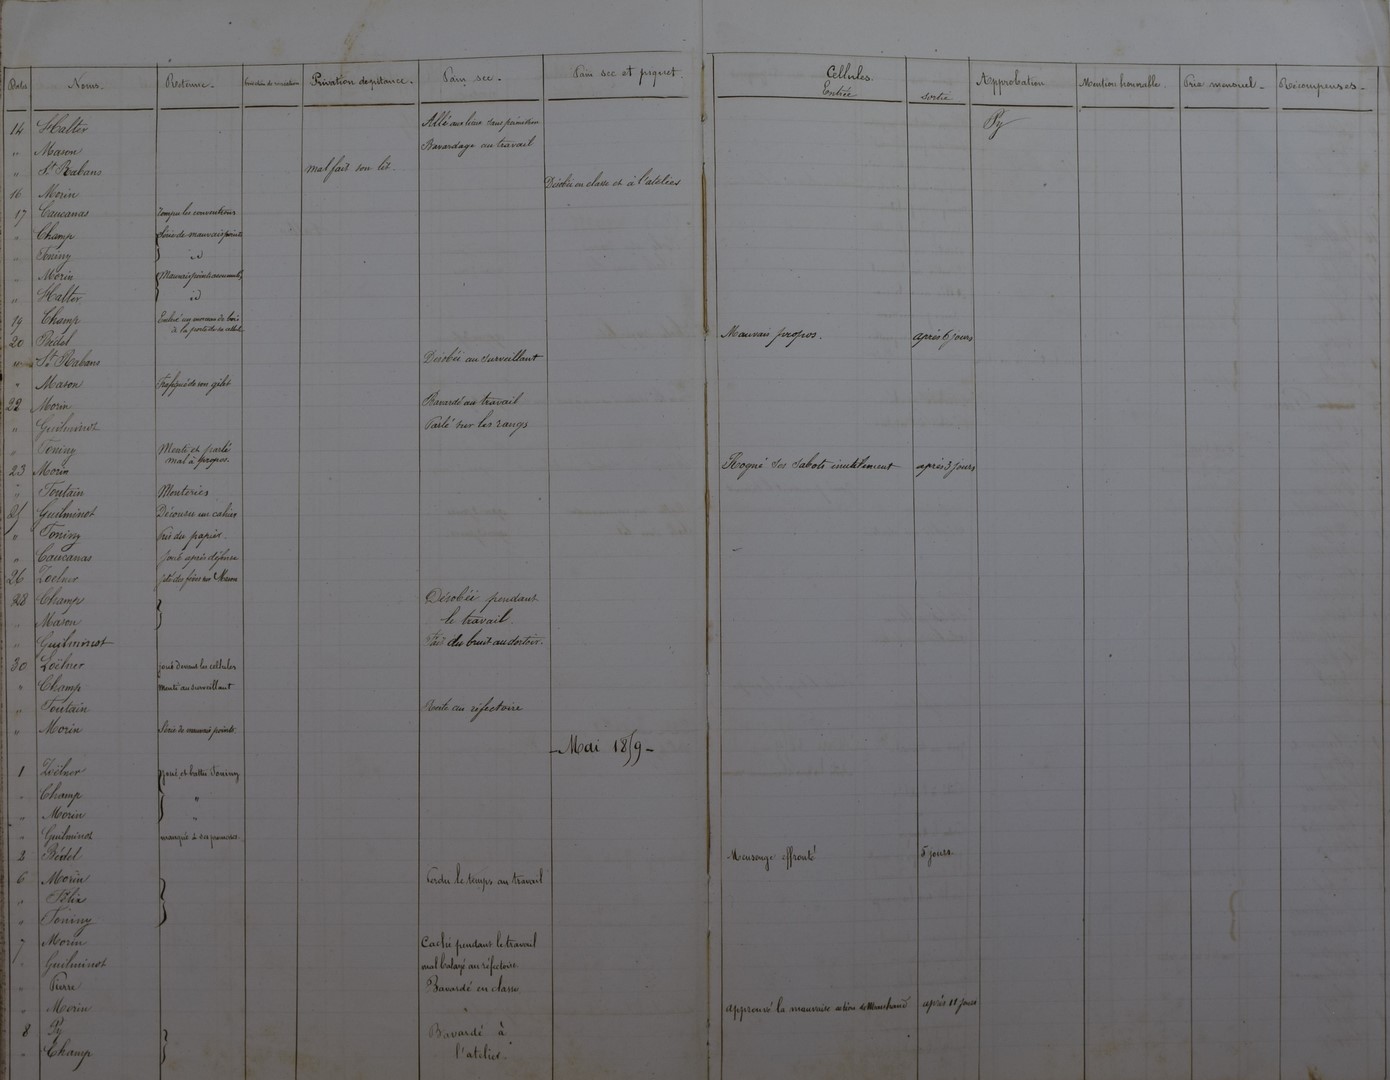 Date Noms. Retenue. Privation de récréation Privation de pitance. Pain sec. Pain sec et piquet. Cellules. Entrée Sortie Approbation Mention honorable. Prix mensuel. Récompenses.
14 Halter Allé aux lieux sans permission Py
" Mason Bavardage au travail
" St Rabans mal fait son lit.
16 Morin Désobéi en classe et à l'atelier
17 Caucanas
" Champ Série de mauvais points
" Toniny id
" Morin Mauvais points
" Halter id
19 Champ un morceau de bois
à la porte de sa cellule
20 Bédel Mauvais propos. après 6 jours
" St Rabans Désobéi au surveillant
" Mason Frappé de son gilet
22 Morin Bavardé au travail
" Guilminot Parlé sur les rangs
" Toniny Menti et parlé
mal à propos.
23 Morin Rogné ses sabots inutilement après 3 jours
" Toutain Menteries
25 Guilminot Décousu un cahier
" Toniny Pris du papier.
" Caucanas Joué après défense
26 Zoëlner Jeté des fèves sur Mason
28 Champ Désobéi pendant
" Mason le travail.
" Guilminot Fait du bruit au dortoir.
30 Zoëlner joué devant les cellules
" Champ Menti au surveillant
" Toutain Reste au réfectoire
" Morin Série de mauvais points
- Mai 1859 -
1 Zoëlner joué et battu Toniny
" Champ "
" Morin "
" Guilminot manqué à ses promesses.
2 Bédel Mensonge effronté 5 jours
6 Morin Perdu le temps au travail
" Félix
" Toniny
7 Morin Caché pendant le travail
" Guilminot mal balayé au réfectoire
" Pierre Bavardé en classe
" Morin " approuvé la mauvaise action de après 11 jours
8 Py Bavardé à
" Champ l'atelier.